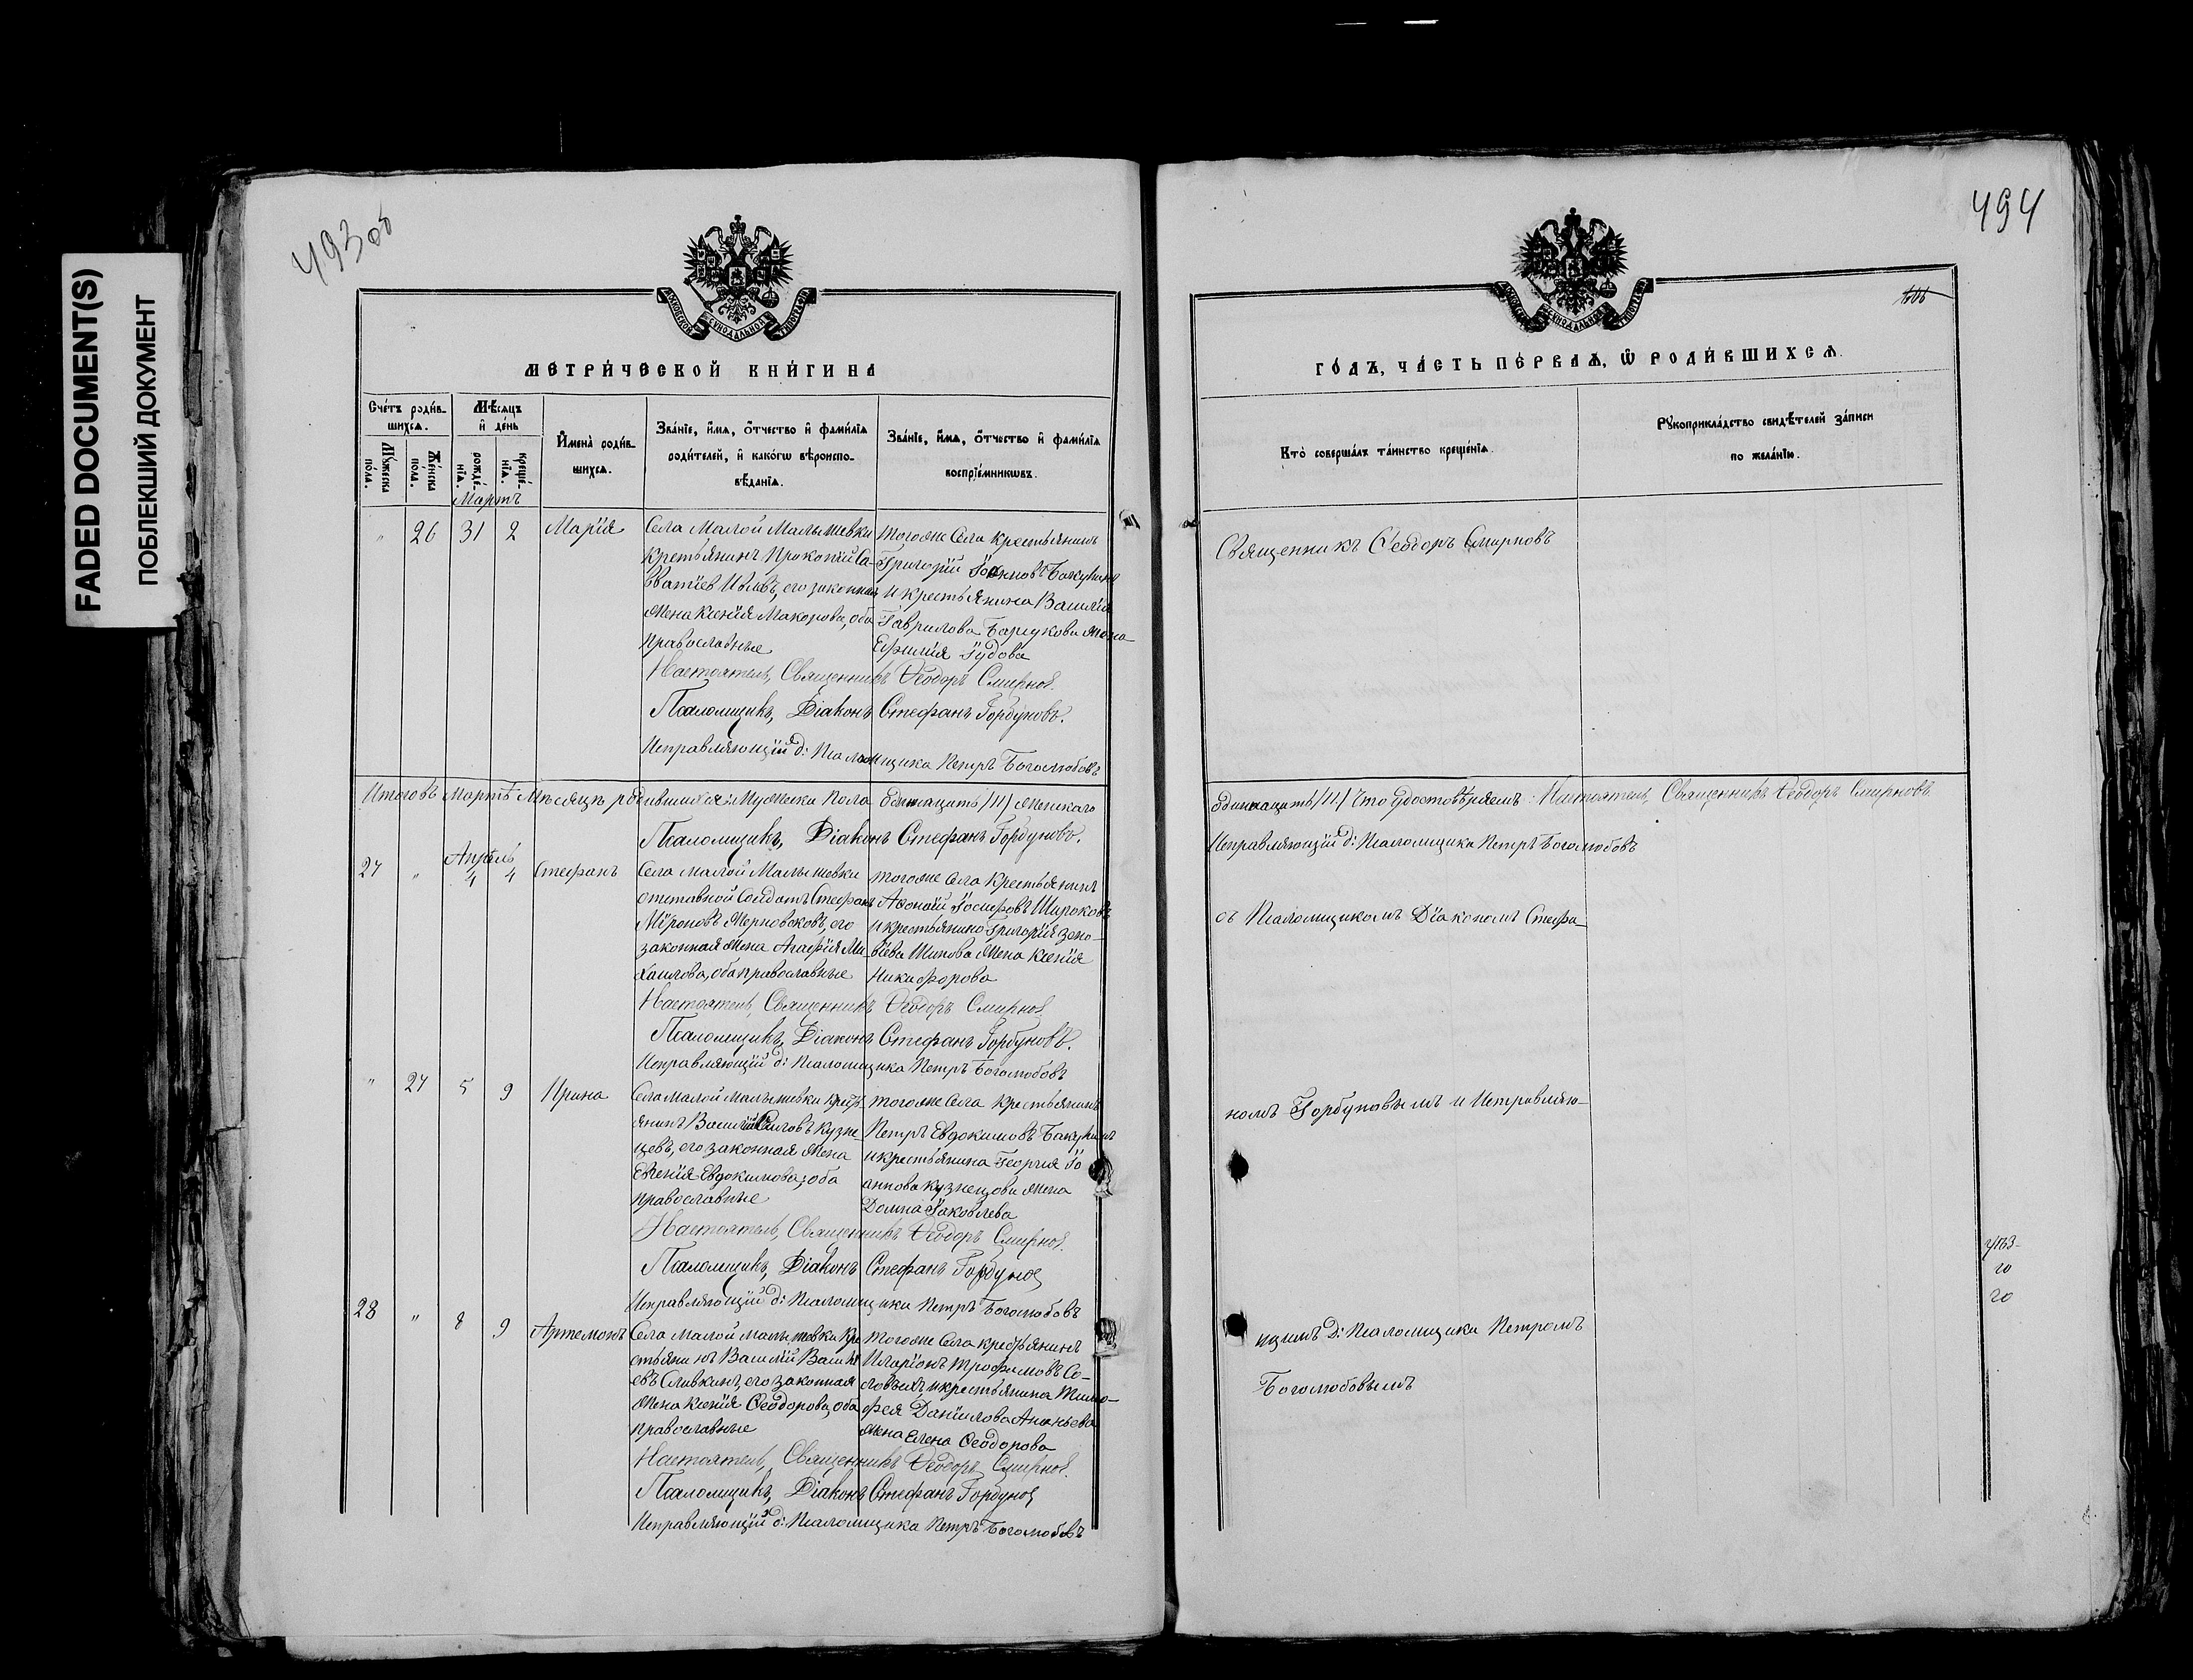 FADED DOCUMENT(S)
ПОБЛЕКШИЙ ДОКУМЕНТ
493 об
МОСКОВСКОЙ СѴНОДАЛЬНОЙ ТИПОГРАФІИ
МЕТРИ́ЧЕСКОЙ КНИ́ГИ НА
Сче́тъ роди́в-
шихсѧ.
Мꙋ́жеска по́ла.
Же́нска по́ла.
Мѣ́сѧцъ
и҆ де́нь
рожде́-
нїѧ.
креще́-
нїѧ.
И҆мена̀ роди́в-
шихсѧ.
Зва́нїе, и҆́мѧ, ѻ҆́тчество и҆ фами́лїѧ
роди́телей, и҆ како́гѡ вѣроиспо-
вѣ́данїѧ.
Зва́нїе, и҆́мѧ, ѻ҆́тчество и҆ фами́лїѧ
воспрїе́мникѡвъ.
Мартъ
" 26 31 2 Марія
Села Малой Малышевки
крестьянинъ Прокопій Са-
вватіев его законная
жена Ксенія Макарова, оба
православные
тогоже села крестьянинъ
Григорій Іоанновъ Бакулинъ
и крестьянина Василія
Гаврилова жена
Гудова
Настоятель, Священникъ Ѳеодоръ Смирнов.
Псаломщикъ, Діаконъ Стефанъ Горбуновъ.
Исправляющій д: Псаломщика Петръ Боголюбовъ
Итого въ Мартѣ Мѣсяцѣ родившихся: Мужеска пола одинацать /11/ женскаго
Псаломщикъ, Діаконъ Стефанъ Горбуновъ.
Апрѣль
27 " 4 4 Стефанъ
Села Малой Малышевки
отставной солдатъ Стефанъ
Мѵроновъ его
законная жена Агафія Ми-
хаилова, оба православные
тогоже села крестьянинъ
Іосифовъ Широковъ
и крестьянина Григорія Зено-
віева Шипова жена Ксенія
Никифорова
Настоятель, Священникъ Ѳеодоръ Смирнов
Псаломщикъ, Діаконъ Стефанъ Горбуновъ.
Исправляющій д: Псаломщика Петръ Боголюбовъ
" 27 5 9 Ирина
Села Малой Малышевки крест-
янинъ Василій Кузне-
цовъ, его законная жена
Евгенія Евдокимова, оба
православные
тогоже села крестьянинъ
Петръ Евдокимовъ Бакулинъ
и крестьянина Георгія Іо
аннова Кузнецова жена
Домна Іаковлева
Настоятель, Священникъ Ѳеодоръ Смирнов.
Псаломщикъ, Діаконъ Стефанъ Горбунов
Исправляющій д: Псаломщика Петръ Боголюбовъ
28 " 8 9 Артемонъ
Села Малой Малышевки кре
стьянинъ Василій Василі
евъ Сливкинъ, его законная
жена Ксенія Ѳеодорова, оба
православные
тогоже села крестьянинъ
Иларіонъ Трофимовъ Со-
ловьевъ и крестьянина Тимо-
фея Даніилова Ананьева
жена Елена Ѳеодорова
Настоятель, Священникъ Ѳеодоръ Смирнов.
Псаломщикъ, Діаконъ Стефанъ Горбунов
Исправляющій д: Псаломщика Петръ Боголюбовъ
494
МОСКОВСКОЙ СѴНОДАЛЬНОЙ ТИПОГРАФІИ
ГО́ДЪ, ЧА́СТЬ ПЕ́РВАѦ, Ѽ РОДИ́ВШИХСѦ.
Кто̀ соверша́лъ та́инство креще́нїѧ.
Рꙋкоприкла́дство свидѣ́телей за́писи
по жела́нїю.
Священникъ Ѳеодоръ Смирновъ
одинацать /11/ Что удостовѣряемъ: Настоятель, Священникъ Ѳеодоръ Смирновъ.
Исправляющій д: Псаломщика Петръ Боголюбовъ
съ Псаломщикомъ Діакономъ Стефа-
номъ Горбуновымъ и Исправляю-
щимъ д: Псаломщика Петромъ
Боголюбовымъ
го
го